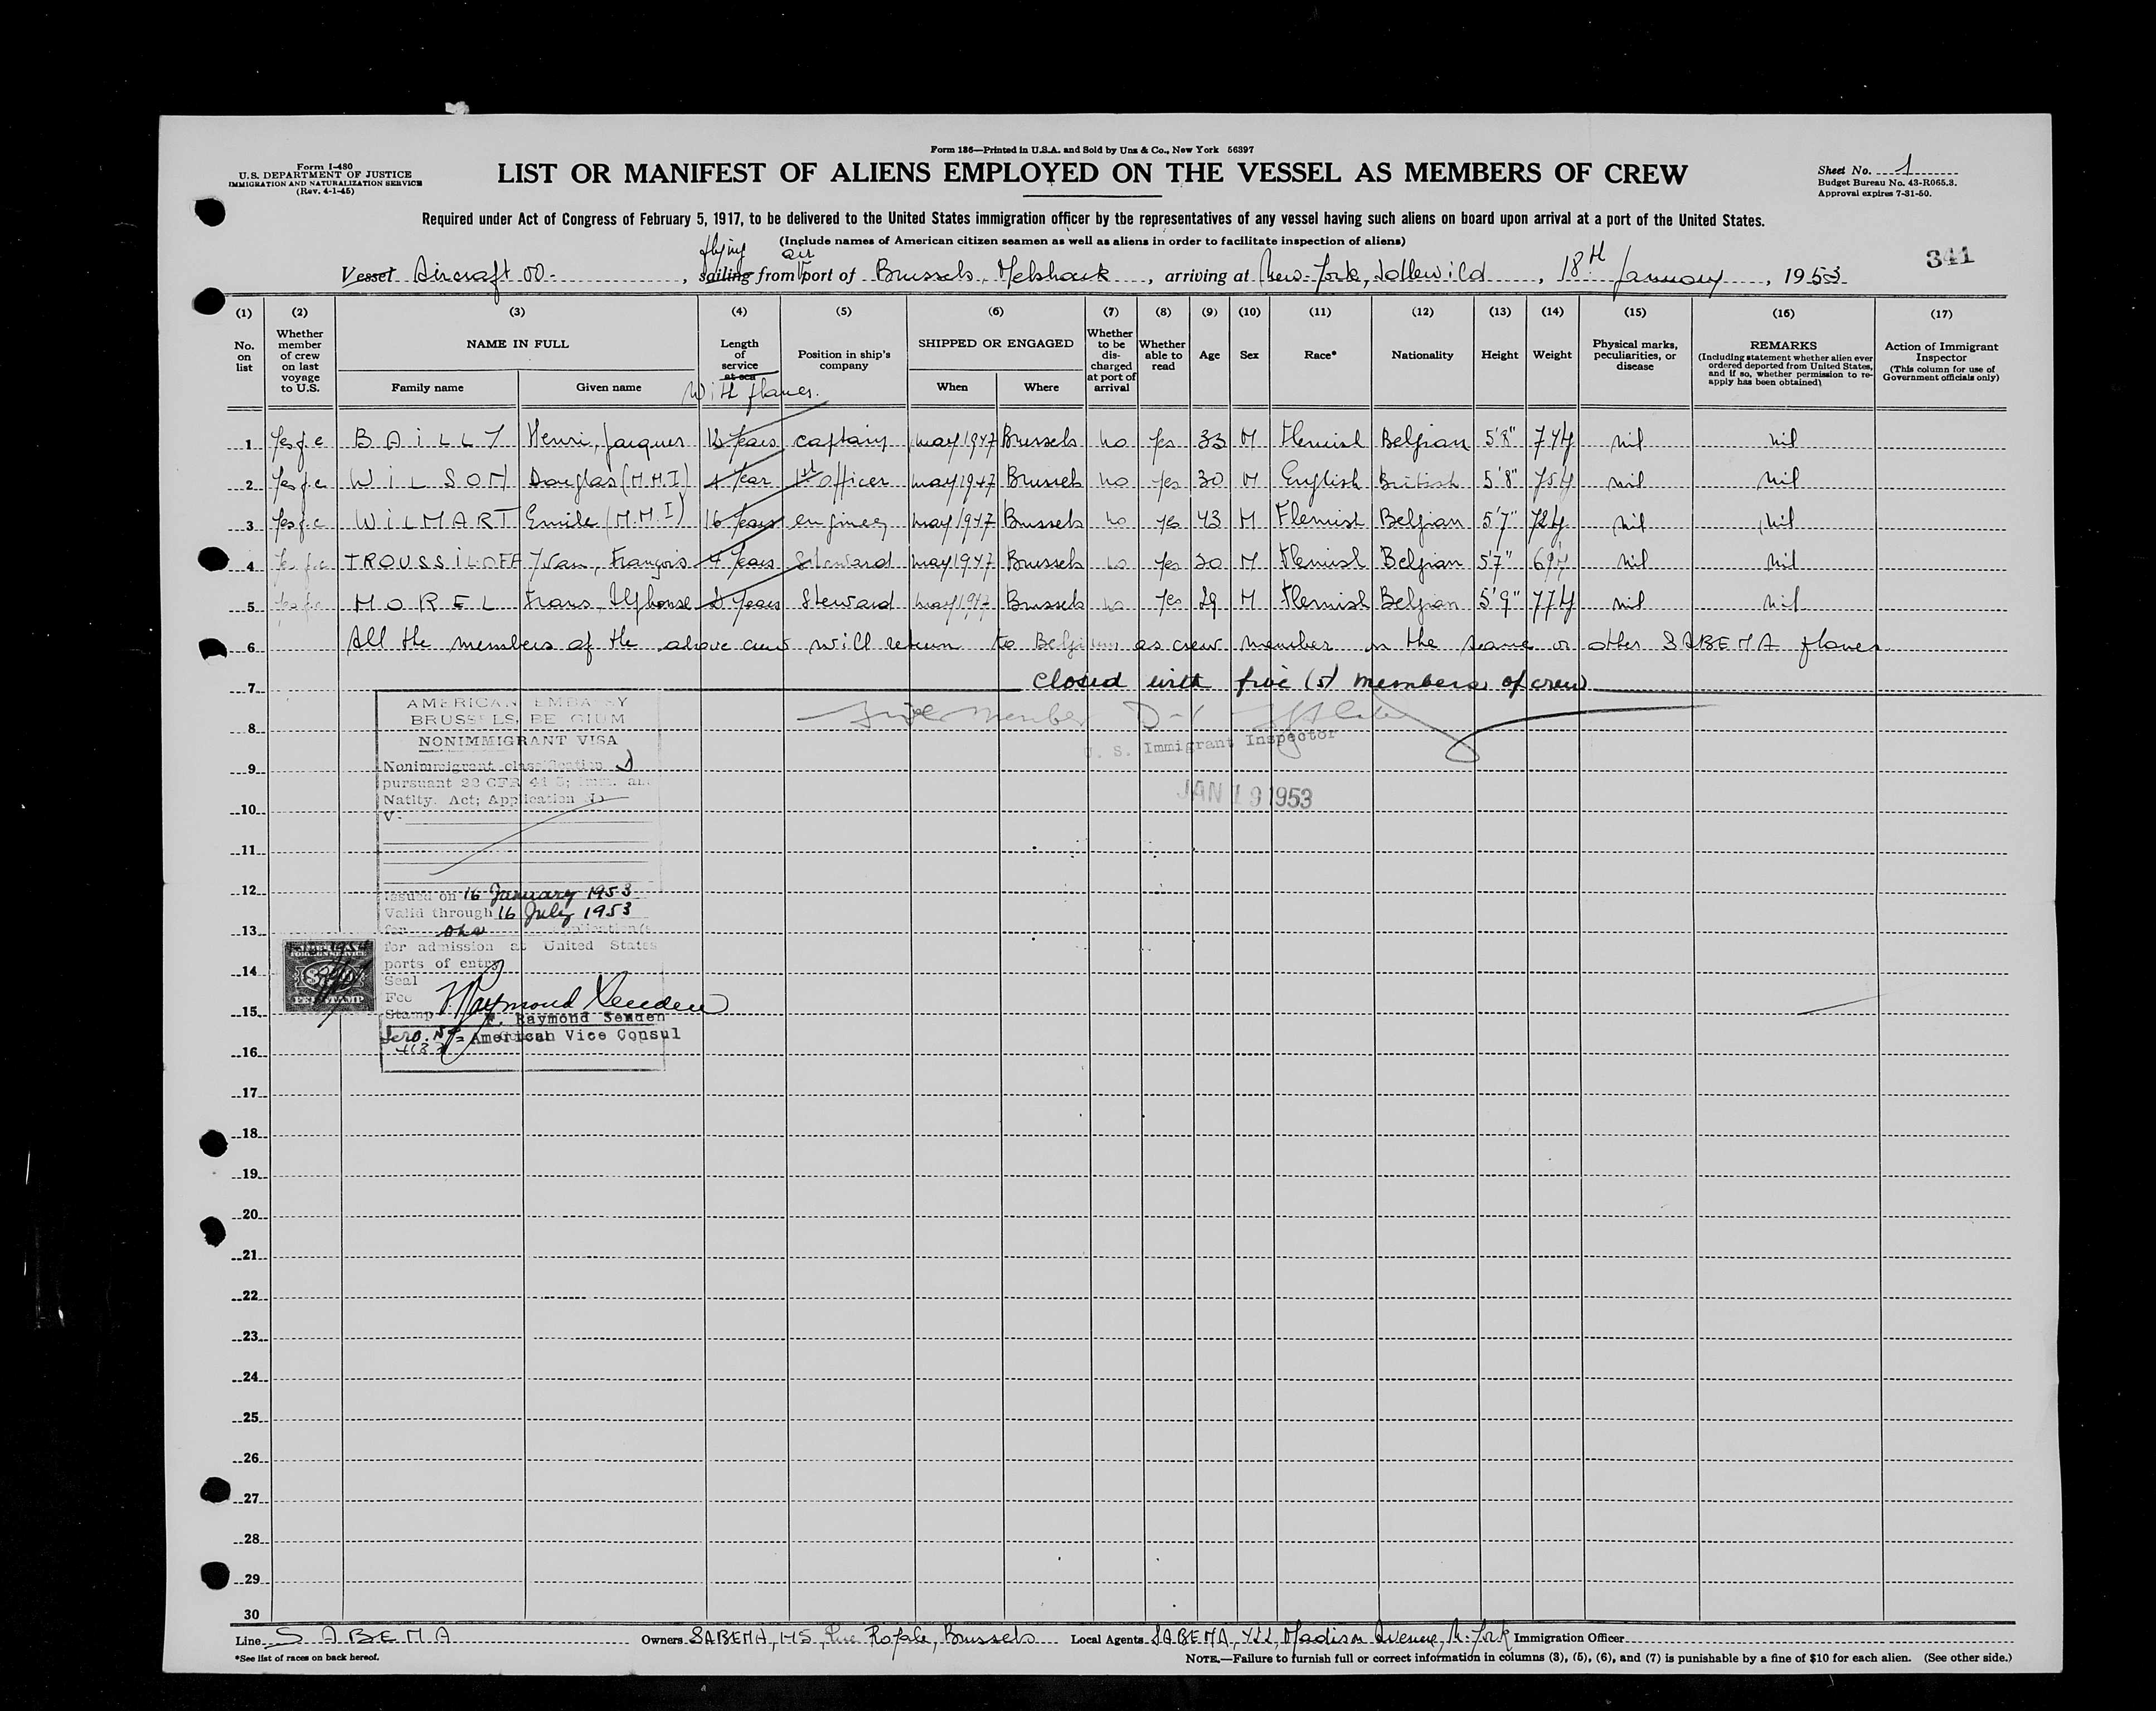 Form 186—Printed in U.S.A. and Sold by Unz & Co., New York 56397
Form I-480
U.S. DEPARTMENT OF JUSTICE
IMMIGRATION AND NATURALIZATION SERVICE
(Rev. 4-1-45)
LIST OR MANIFEST OF ALIENS EMPLOYED ON THE VESSEL AS MEMBERS OF CREW
Sheet No. 1
Budget Bureau No. 43-R065.3.
Approval expires 7-31-50.
Required under Act of Congress of February 5, 1917, to be delivered to the United States immigration officer by the representatives of any vessel having such aliens on board upon arrival at a port of the United States.
(Include names of American citizen seamen as well as aliens in order to facilitate inspection of aliens)
341
flying air
Vessel Aircraft OO- , sailing from port of Brussels, Melsbroek , arriving at New-York, Idlewild , 18th January , 1953
(1) (2) (3) (4) (5) (6) (7) (8) (9) (10) (11) (12) (13) (14) (15) (16) (17)
No. on list
Whether member of crew on last voyage to U.S.
NAME IN FULL
Family name Given name
Length of service at sea
With planes.
Position in ship's company
SHIPPED OR ENGAGED
When Where
Whether to be discharged at port of arrival
Whether able to read
Age Sex Race* Nationality Height Weight
Physical marks, peculiarities, or disease
REMARKS
(Including statement whether alien ever ordered deported from United States, and if so, whether permission to reapply has been obtained)
Action of Immigrant Inspector
(This column for use of Government officials only)
1 Yes f.c BAILLY Henri, Jacques Years captain may 1947 Brussels no yes 33 M Flemish Belgian 5'8" nil nil
2 Yes f.c WILSON Douglas (M.M.I) 1 Year 1st officer may 1947 Brussels no yes 30 M English British 5'8" nil nil
3 Yes f.c WILMART Emile (M.M.I) 16 Years engineer may 1947 Brussels no yes 43 M Flemish Belgian 5'7" nil nil
4 Yes f.c TROUSSILOFF Yvan, François 4 Years Steward may 1947 Brussels no yes M Flemish Belgian 5'7" nil nil
5 Yes f.c MOREL Frans, Alphonse Years Steward may 1947 Brussels no yes 29 M Flemish Belgian 5'9" nil nil
6 All the members of the above crew will return to Belgium as crew member on the same or other SABENA planes
7 closed with five (5) members of crew
AMERICAN EMBASSY
BRUSSELS, BELGIUM
NONIMMIGRANT VISA
five member D-1
U. S. Immigrant Inspector
JAN 19 1953
Nonimmigrant classification D
pursuant 22 CFR 41.5; Imm. and
Natlty. Act; Application No
V-
Issued on 16 January 1953
Valid through 16 July 1953
for one application(s
for admission at United States
ports of entry
Seal
Fee
Stamp
F. Raymond Senden
American Vice Consul
FOREIGN SERVICE
FEE STAMP
8
9
10
11
12
13
14
15
16
17
18
19
20
21
22
23
24
25
26
27
28
29
30
Line SABENA Owners SABENA, 145, Rue Royale, Brussels Local Agents SABENA, 422, Madison Avenue, N. York Immigration Officer
*See list of races on back hereof.
NOTE.—Failure to furnish full or correct information in columns (3), (5), (6), and (7) is punishable by a fine of $10 for each alien. (See other side.)